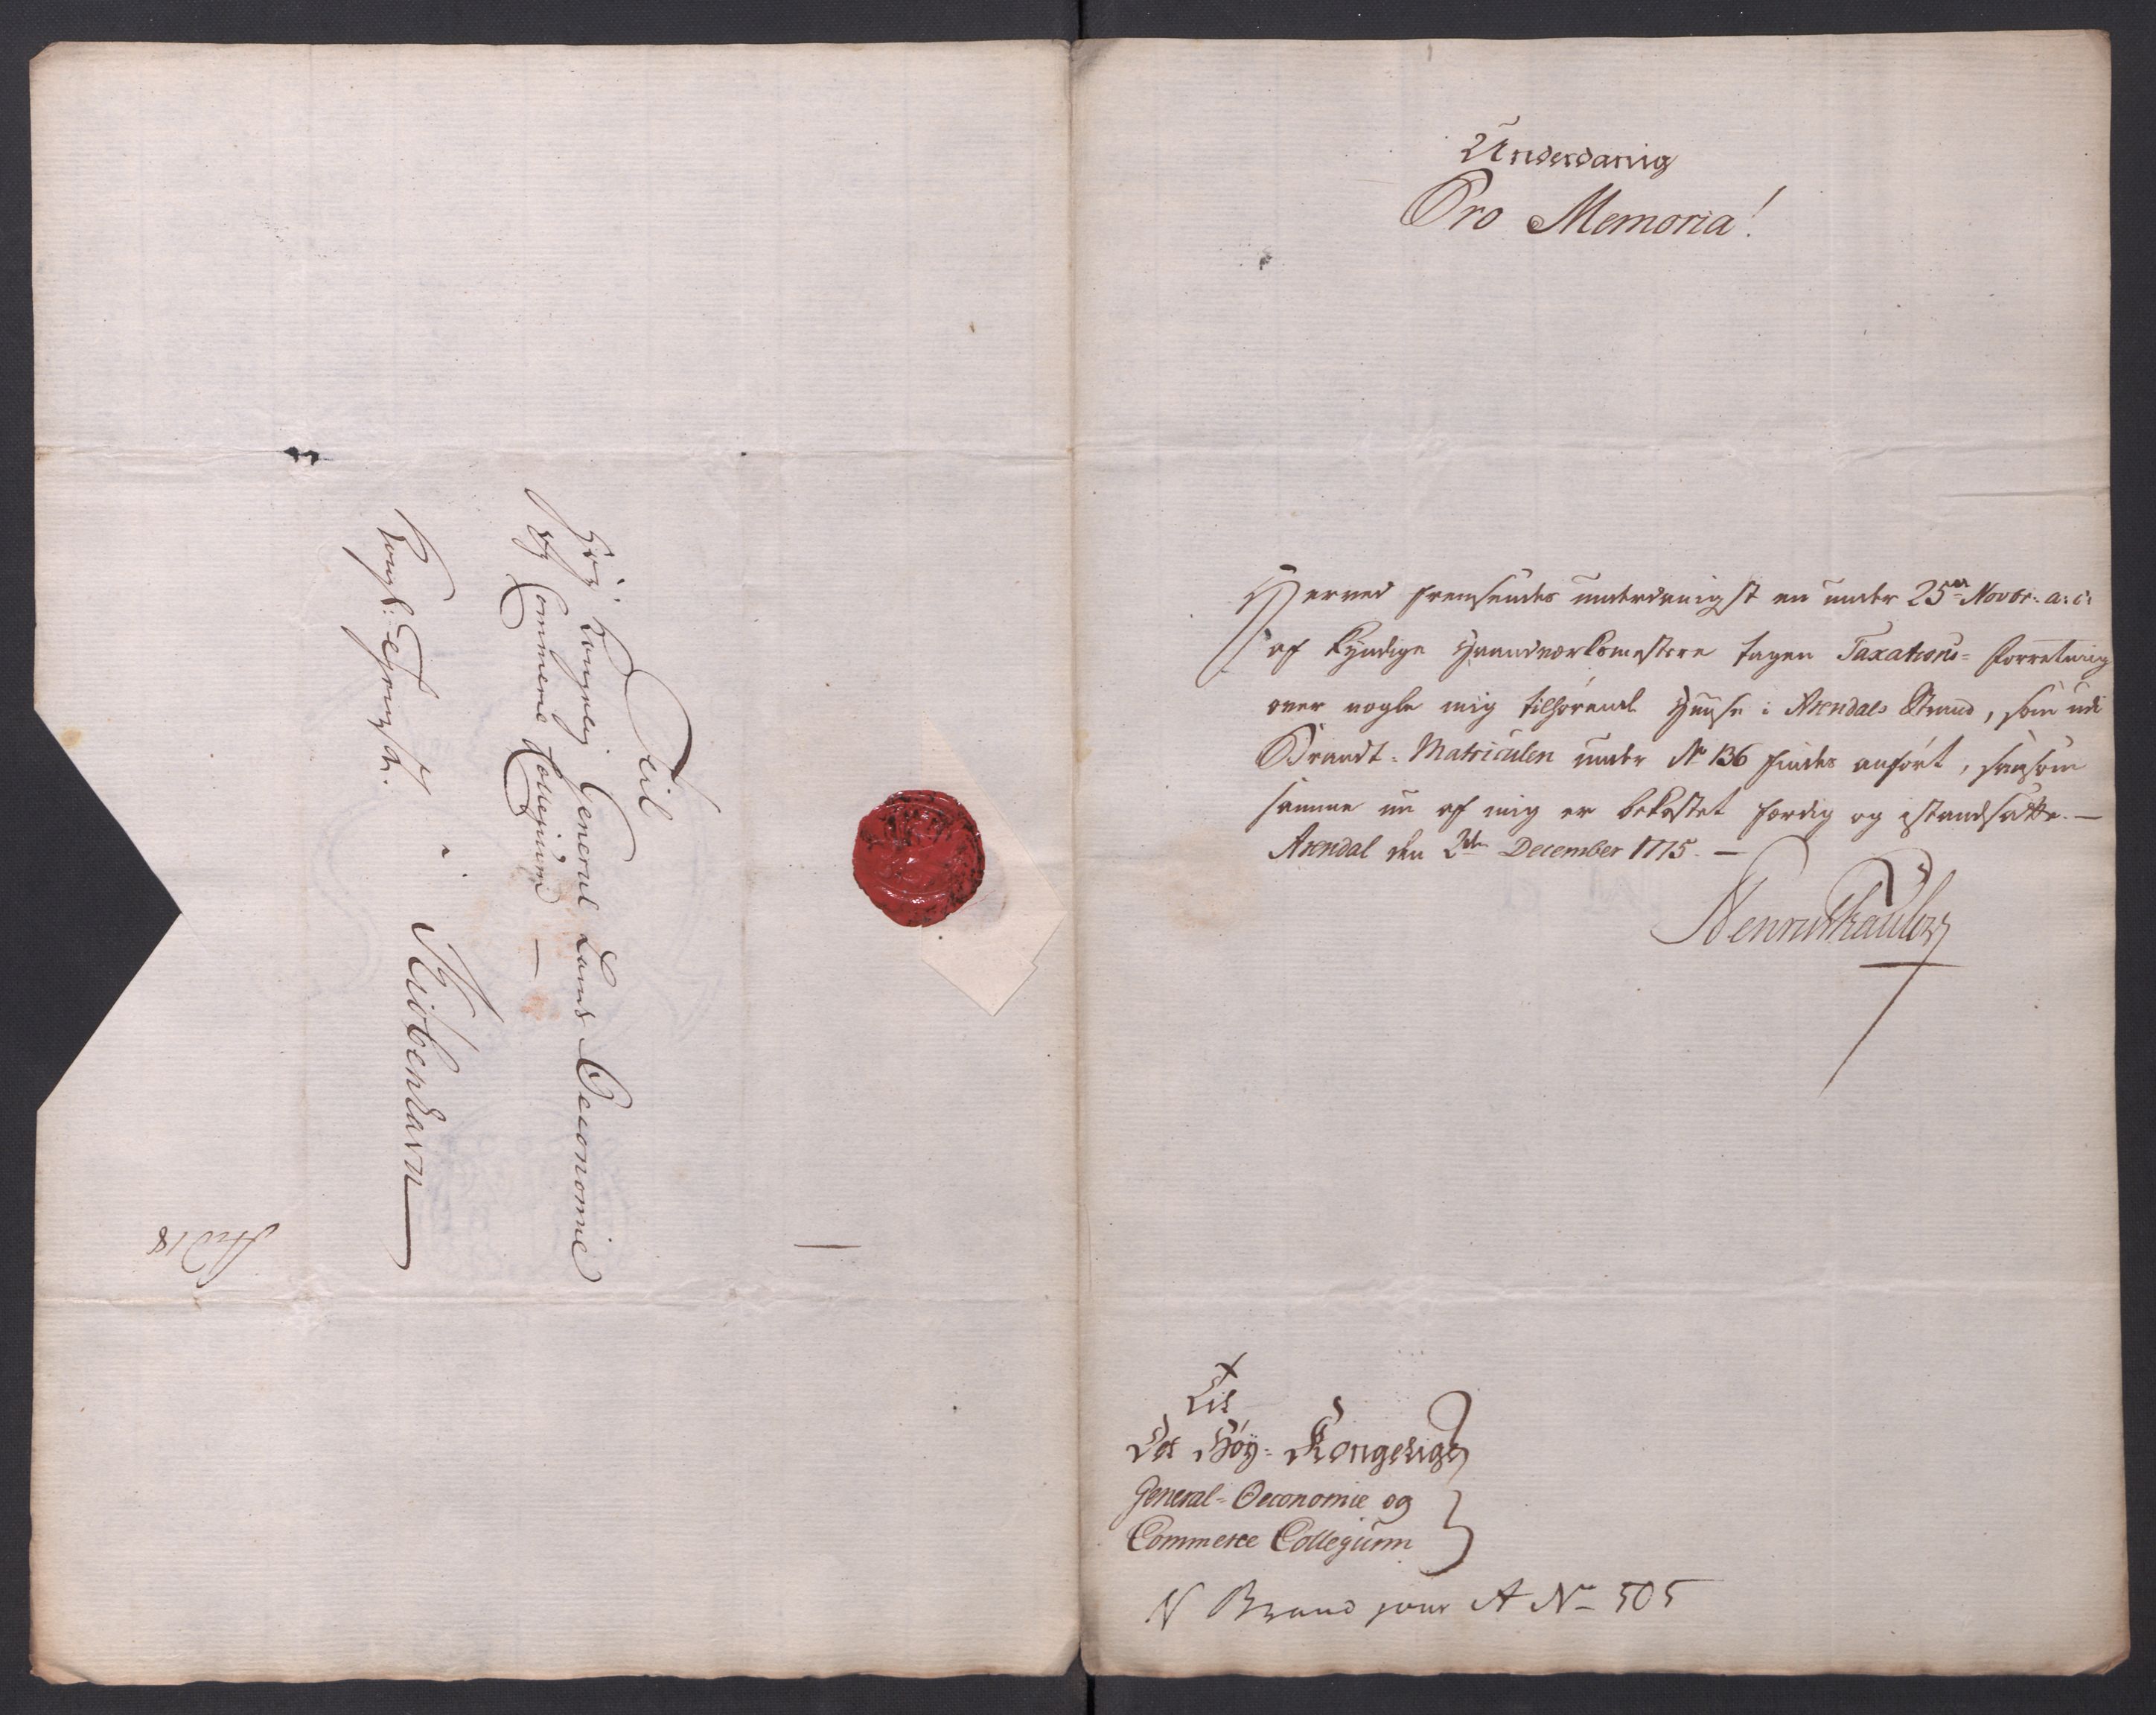 Til
Høy Kongelig General Lands Oeconomie
og Commerce Collegium
Kongl: Tieneste.
i Kiøbenhavn
Underdanig
Pro Memoria!
Herved fremsendes underdanigst en under 25de Novbr: a: c:
af kyndige Haandværksmestere tagen Taxations- Forretning
over nogle mig tilhørende Huuse i Arendals Strand, som udi
Brandt-Matriculen under No 136 findes anført, saasom
samme nu af mig er bekostet færdig og istandsatte. —
Arendal den 2den December 1775. —
Til
Det Høy- Kongelige
General- Oeconomie og
Commerce Collegium
N Brand jour A No 505